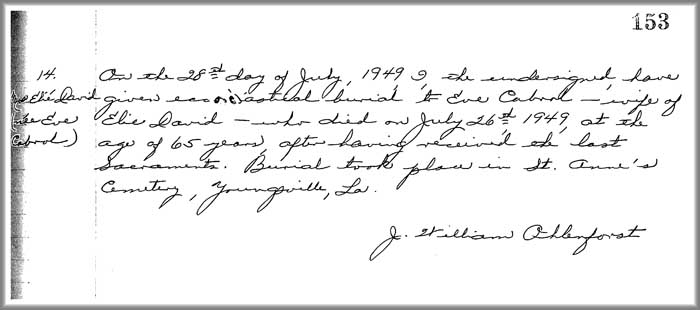 153
14. On the 28th day of July, 1949 I, the undersigned, have
Elie David given ecclesiastical burial to Eve Cabrol — wife of
Eve Elie David — who died on July 26th 1949, at the
Cabrol) age of 65 years, after having received the last
Sacraments. Burial took place in St. Anne's
Cemetery, Youngsville, La.
J. William Ohlenforst